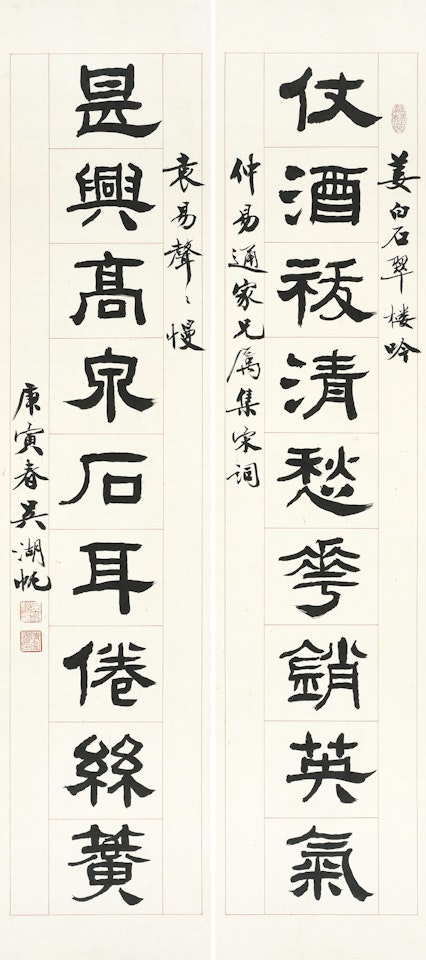 姜白石翠楼吟
仗酒祓清愁華銷英氣
仲易通家兄属集宋詞
袁易聲〻慢
昰興髙泉石耳倦絲簧
庚寅春吴湖帆